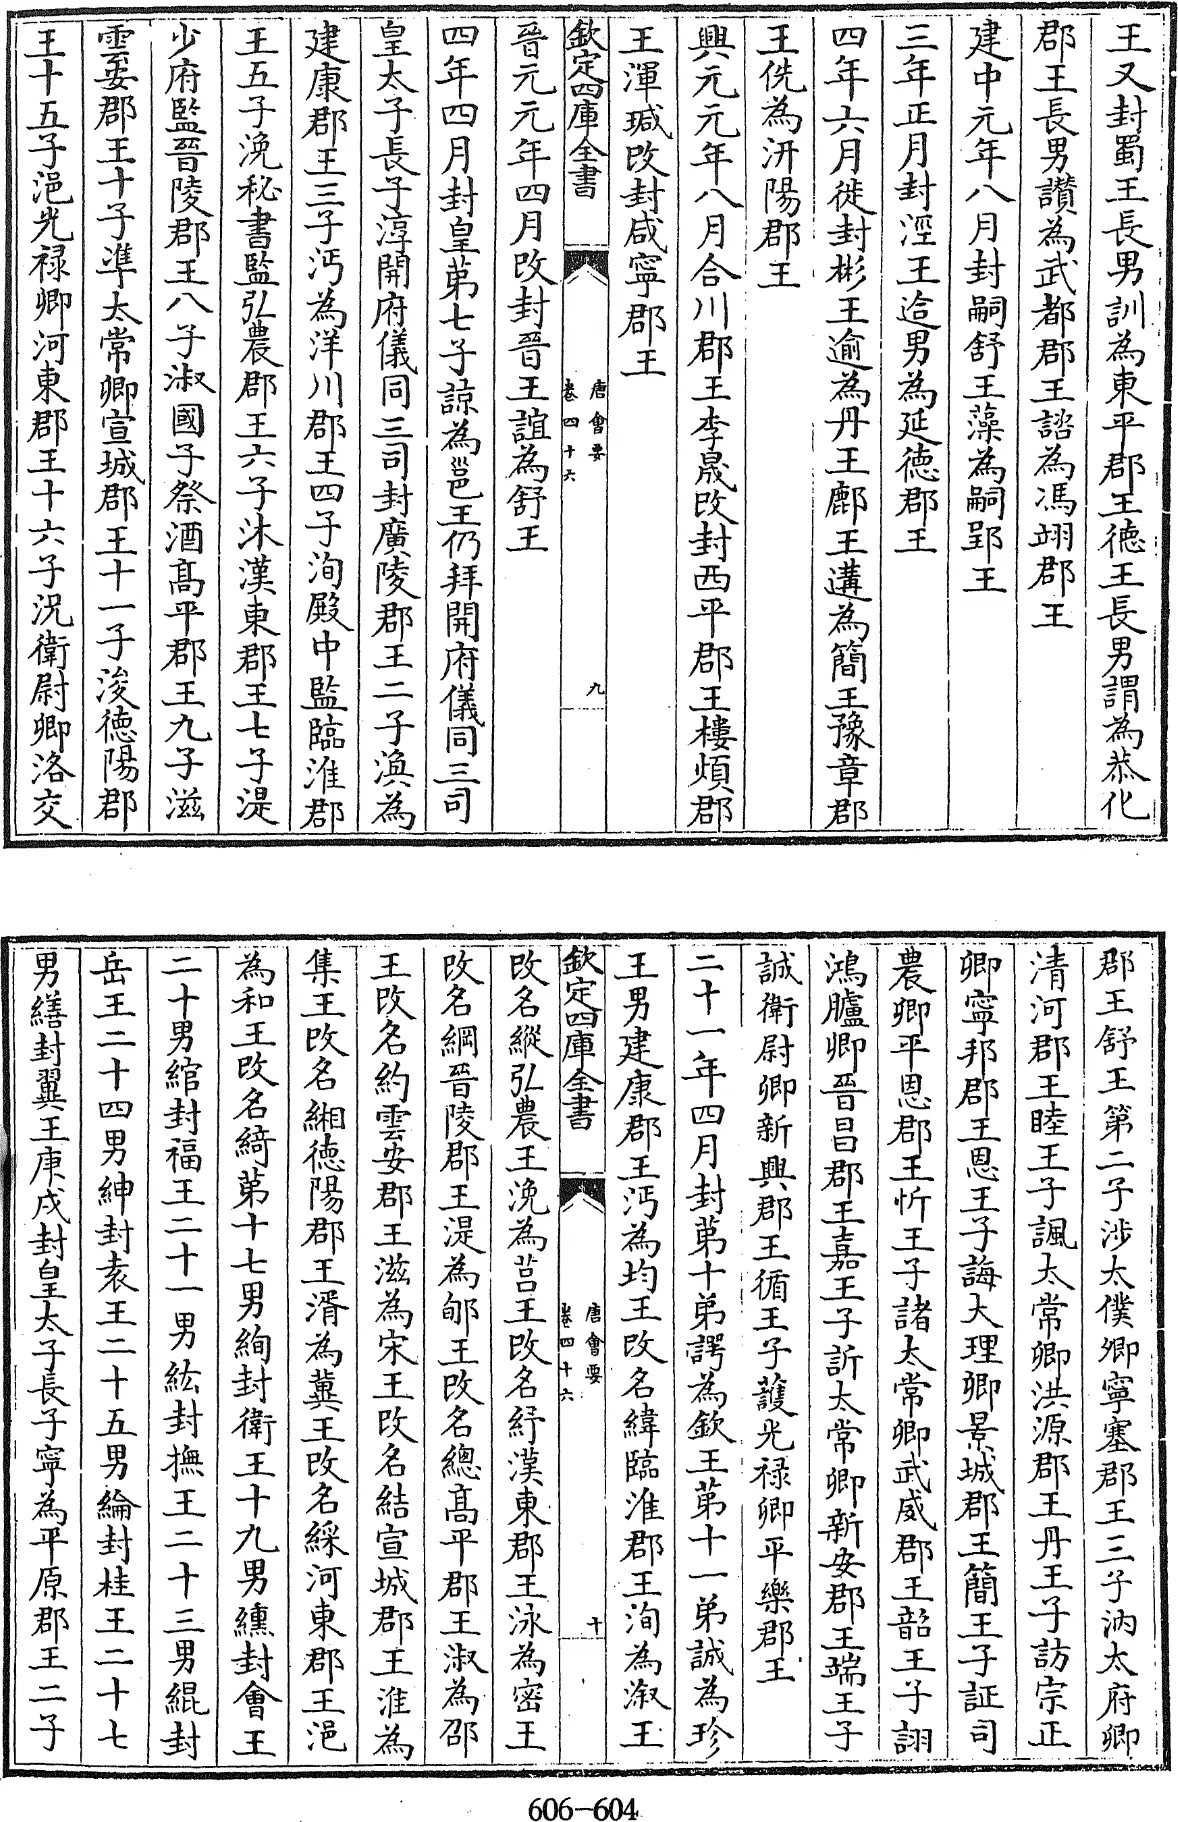 王又封蜀王長男訓為東平郡王德王長男謂為恭化
郡王長男讃為武都郡王諮為馮翊郡王
建中元年八月封嗣舒王藻為嗣郢王
三年正月封涇王迨男為延德郡王
四年六月徙封彬王逾為丹王鄜王遘為簡王豫章郡
王侁為汧陽郡王
興元元年八月合川郡王李晟改封西平郡王樓煩郡
王渾瑊改封咸寧郡王
欽定四庫全書
唐會要
卷四十六
九
晉元元年四月改封晉王誼為舒王
四年四月封皇第七子諒為邕王仍拜開府儀同三司
皇太子長子淳開府儀同三司封廣陵郡王二子渙為
建康郡王三子沔為洋川郡王四子洵殿中監臨淮郡
王五子浼秘書監弘農郡王六子沐漢東郡王七子湜
少府監晉陵郡王八子淑國子祭酒髙平郡王九子滋
雲安郡王十子準太常卿宣城郡王十一子浚德陽郡
王十五子浥光禄卿河東郡王十六子況衛尉卿洛交
郡王舒王第二子涉太僕卿寧塞郡王三子汭太府卿
清河郡王睦王子諷太常卿洪源郡王丹王子訪宗正
卿寧邦郡王恩王子誨大理卿景城郡王簡王子証司
農卿平恩郡王忻王子諸太常卿武威郡王韶王子詡
鴻臚卿晉昌郡王嘉王子訢太常卿新安郡王端王子
誠衛尉卿新興郡王循王子䕶光禄卿平樂郡王
二十一年四月封第十弟諤為欽王第十一弟諴為珍
王男建康郡王沔為均王改名緯臨淮郡王洵為溆王
欽定四庫全書
唐會要
卷四十六
十
改名縱弘農王浼為莒王改名紓漢東郡王泳為密王
改名綢晉陵郡王湜為郇王改名總髙平郡王淑為邵
王改名約雲安郡王滋為宋王改名結宣城郡王淮為
集王改名緗德陽郡王湑為冀王改名綵河東郡王浥
為和王改名綺第十七男絢封衛王十九男纁封會王
二十男綰封福王二十一男紘封撫王二十三男緄封
岳王二十四男紳封袁王二十五男綸封桂王二十七
男繕封翼王庚戌封皇太子長子寧為平原郡王二子
606-604